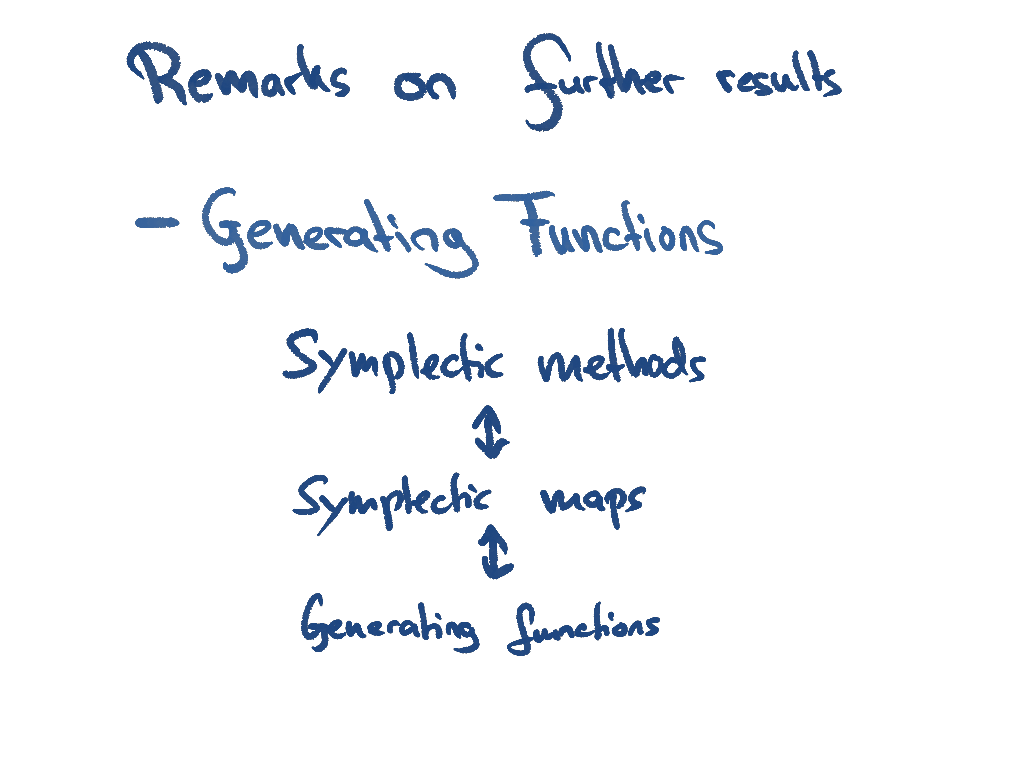 Remarks on further results
- Generating Functions
Symplectic methods
↕
Symplectic maps
↕
Generating functions